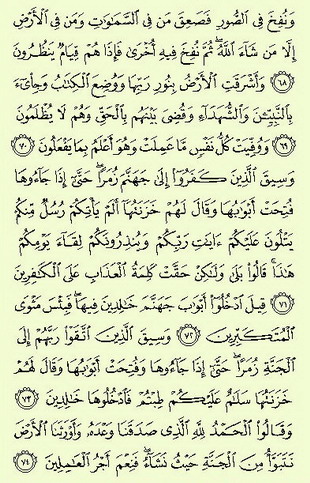 وَنُفِخَ فِى ٱلصُّورِ فَصَعِقَ مَن فِى ٱلسَّمَٰوَٰتِ وَمَن فِى ٱلْأَرْضِ
إِلَّا مَن شَآءَ ٱللَّهُ ۖ ثُمَّ نُفِخَ فِيهِ أُخْرَىٰ فَإِذَا هُمْ قِيَامٌ يَنظُرُونَ
﴿٦٨﴾ وَأَشْرَقَتِ ٱلْأَرْضُ بِنُورِ رَبِّهَا وَوُضِعَ ٱلْكِتَٰبُ وَجِا۟ىٓءَ
بِٱلنَّبِيِّۦنَ وَٱلشُّهَدَآءِ وَقُضِىَ بَيْنَهُم بِٱلْحَقِّ وَهُمْ لَا يُظْلَمُونَ
﴿٦٩﴾ وَوُفِّيَتْ كُلُّ نَفْسٍ مَّا عَمِلَتْ وَهُوَ أَعْلَمُ بِمَا يَفْعَلُونَ ﴿٧٠﴾
وَسِيقَ ٱلَّذِينَ كَفَرُوٓا۟ إِلَىٰ جَهَنَّمَ زُمَرًا ۖ حَتَّىٰٓ إِذَا جَآءُوهَا
فُتِحَتْ أَبْوَٰبُهَا وَقَالَ لَهُمْ خَزَنَتُهَآ أَلَمْ يَأْتِكُمْ رُسُلٌ مِّنكُمْ
يَتْلُونَ عَلَيْكُمْ ءَايَٰتِ رَبِّكُمْ وَيُنذِرُونَكُمْ لِقَآءَ يَوْمِكُمْ
هَٰذَا ۚ قَالُوا۟ بَلَىٰ وَلَٰكِنْ حَقَّتْ كَلِمَةُ ٱلْعَذَابِ عَلَى ٱلْكَٰفِرِينَ
﴿٧١﴾ قِيلَ ٱدْخُلُوٓا۟ أَبْوَٰبَ جَهَنَّمَ خَٰلِدِينَ فِيهَا ۖ فَبِئْسَ مَثْوَى
ٱلْمُتَكَبِّرِينَ ﴿٧٢﴾ وَسِيقَ ٱلَّذِينَ ٱتَّقَوْا۟ رَبَّهُمْ إِلَى
ٱلْجَنَّةِ زُمَرًا ۖ حَتَّىٰٓ إِذَا جَآءُوهَا وَفُتِحَتْ أَبْوَٰبُهَا وَقَالَ لَهُمْ
خَزَنَتُهَا سَلَٰمٌ عَلَيْكُمْ طِبْتُمْ فَٱدْخُلُوهَا خَٰلِدِينَ ﴿٧٣﴾
وَقَالُوا۟ ٱلْحَمْدُ لِلَّهِ ٱلَّذِى صَدَقَنَا وَعْدَهُۥ وَأَوْرَثَنَا ٱلْأَرْضَ
نَتَبَوَّأُ مِنَ ٱلْجَنَّةِ حَيْثُ نَشَآءُ ۖ فَنِعْمَ أَجْرُ ٱلْعَٰمِلِينَ ﴿٧٤﴾